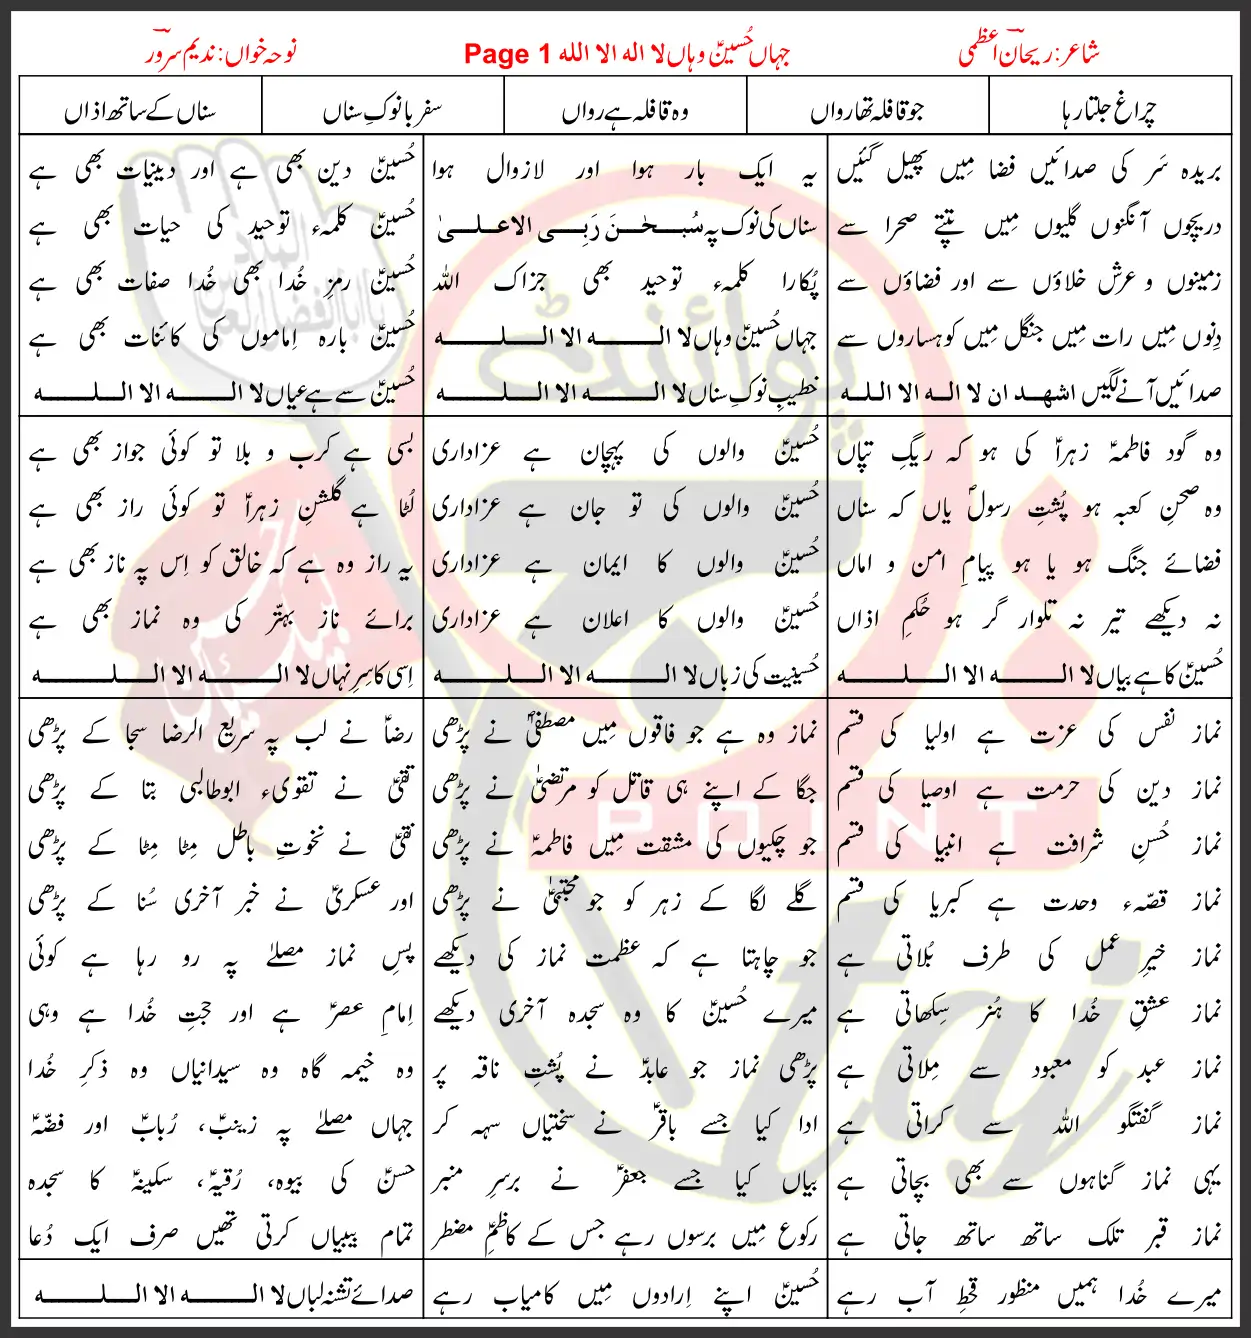 شاعر: ریحان اعظمی
جہاں حُسینؑ وہاں لا الہ الا اللہ Page 1
نوحہ خواں: ندیم سرور
چراغ جلتا رہا
جو قافلہ تھا رواں
وہ قافلہ ہے رواں
سفر با نوکِ سناں
سناں کے ساتھ اذاں
بریدہ سَر کی صدائیں فضا مِیں پھیل گئیں
دریچوں آنگنوں گلیوں مِیں تپتے صحرا سے
زمینوں و عرش خلاؤں سے اور فضاؤں سے
دِنوں مِیں رات مِیں جنگل مِیں کوہساروں سے
صدائیں آنے لگیں اشھد ان لا الہ الا اللہ
یہ ایک بار ہوا اور لازوال ہوا
سناں کی نوک پہ سُبحٰنَ رَبِی الاعلیٰ
پُکارا کلمہء توحید بھی جزاک اللہ
جہاں حُسینؑ وہاں لا الہ الا اللہ
خطیبِ نوکِ سناں لا الہ الا اللہ
حُسینؑ دین بھی ہے اور دینیات بھی ہے
حُسینؑ کلمہء توحید کی حیات بھی ہے
حُسینؑ رمزِ خُدا بھی خُدا صفات بھی ہے
حُسینؑ بارہ اِماموں کی کائنات بھی ہے
حُسینؑ سے ہے عیاں لا الہ الا اللہ
وہ گود فاطمہؑ زہراؑ کی ہو کہ ریگِ تپاں
وہ صحنِ کعبہ ہو پُشتِ رسولؐ یاں کہ سناں
فضائے جنگ ہو یا ہو پیامِ امن و اماں
نہ دیکھے تیر نہ تلوار گر ہو حُکمِ اذاں
حُسینؑ کا ہے بیاں لا الہ الا اللہ
حُسینؑ والوں کی پہچان ہے عزاداری
حُسینؑ والوں کی تو جان ہے عزاداری
حُسینؑ والوں کا ایمان ہے عزاداری
حُسینؑ والوں کا اعلان ہے عزاداری
حُسینیت کی زباں لا الہ الا اللہ
بسی ہے کرب و بلا تو کوئی جواز بھی ہے
لُٹا ہے گلشنِ زہراؑ تو کوئی راز بھی ہے
یہ راز وہ ہے کہ خالق کو اِس پہ ناز بھی ہے
برائے ناز بہتّر کی وہ نماز بھی ہے
اِسی کا سِرِ نہاں لا الہ الا اللہ
نماز نفس کی عزت ہے اولیا کی قسم
نماز دین کی حرمت ہے اوصیا کی قسم
نماز حُسنِ شرافت ہے انبیا کی قسم
نماز قصّہء وحدت ہے کبریا کی قسم
نماز خیرِ عمل کی طرف بُلاتی ہے
نماز عشقِ خُدا کا ہُنر سِکھاتی ہے
نماز عبد کو معبود سے مِلاتی ہے
نماز گفتگو اللہ سے کراتی ہے
یہی نماز گناہوں سے بھی بچاتی ہے
نماز قبر تلک ساتھ ساتھ جاتی ہے
نماز وہ ہے جو فاقوں مِیں مصطفیٰؐ نے پڑھی
جگا کے اپنے ہی قاتل کو مرتضیٰؑ نے پڑھی
جو چکیوں کی مشقت مِیں فاطمہؑ نے پڑھی
گلے لگا کے زہر کو جو مجتبیٰؑ نے پڑھی
جو چاہتا ہے کہ عظمت نماز کی دیکھے
میرے حُسینؑ کا وہ سجدہ آخری دیکھے
پڑھی نماز جو عابدؑ نے پُشتِ ناقہ پر
ادا کیا جسے باقرؑ نے سختیاں سہہ کر
بیاں کیا جسے جعفرؑ نے برسرِ منبر
رکوع مِیں برسوں رہے جس کے کاظمِؑ مضطر
رضاؑ نے لب پہ سریع الرضا سجا کے پڑھی
تقیؑ نے تقویء ابوطالبی بتا کے پڑھی
نقیؑ نے نخوتِ باطل مِٹا مِٹا کے پڑھی
اور عسکریؑ نے خبر آخری سُنا کے پڑھی
پسِ نماز مصلےٰ پہ رو رہا ہے کوئی
اِمامِ عصرؑ ہے اور حجتِ خُدا ہے وہی
وہ خیمہ گاہ وہ سیدانیاں وہ ذکرِ خُدا
جہاں مصلےٰ پہ زینبؑ، رُبابؑ اور فضّہؑ
حسنؑ کی بیوہ، رُقیہؑ، سکینہؑ کا سجدہ
تمام بیبیاں کرتی تھیں صرف ایک دُعا
میرے خُدا ہمیں منظور قحطِ آب رہے
حُسینؑ اپنے اِرادوں مِیں کامیاب رہے
صدائے تشنہ لباں لا الہ الا اللہ
پوائنٹ
POINT
taj